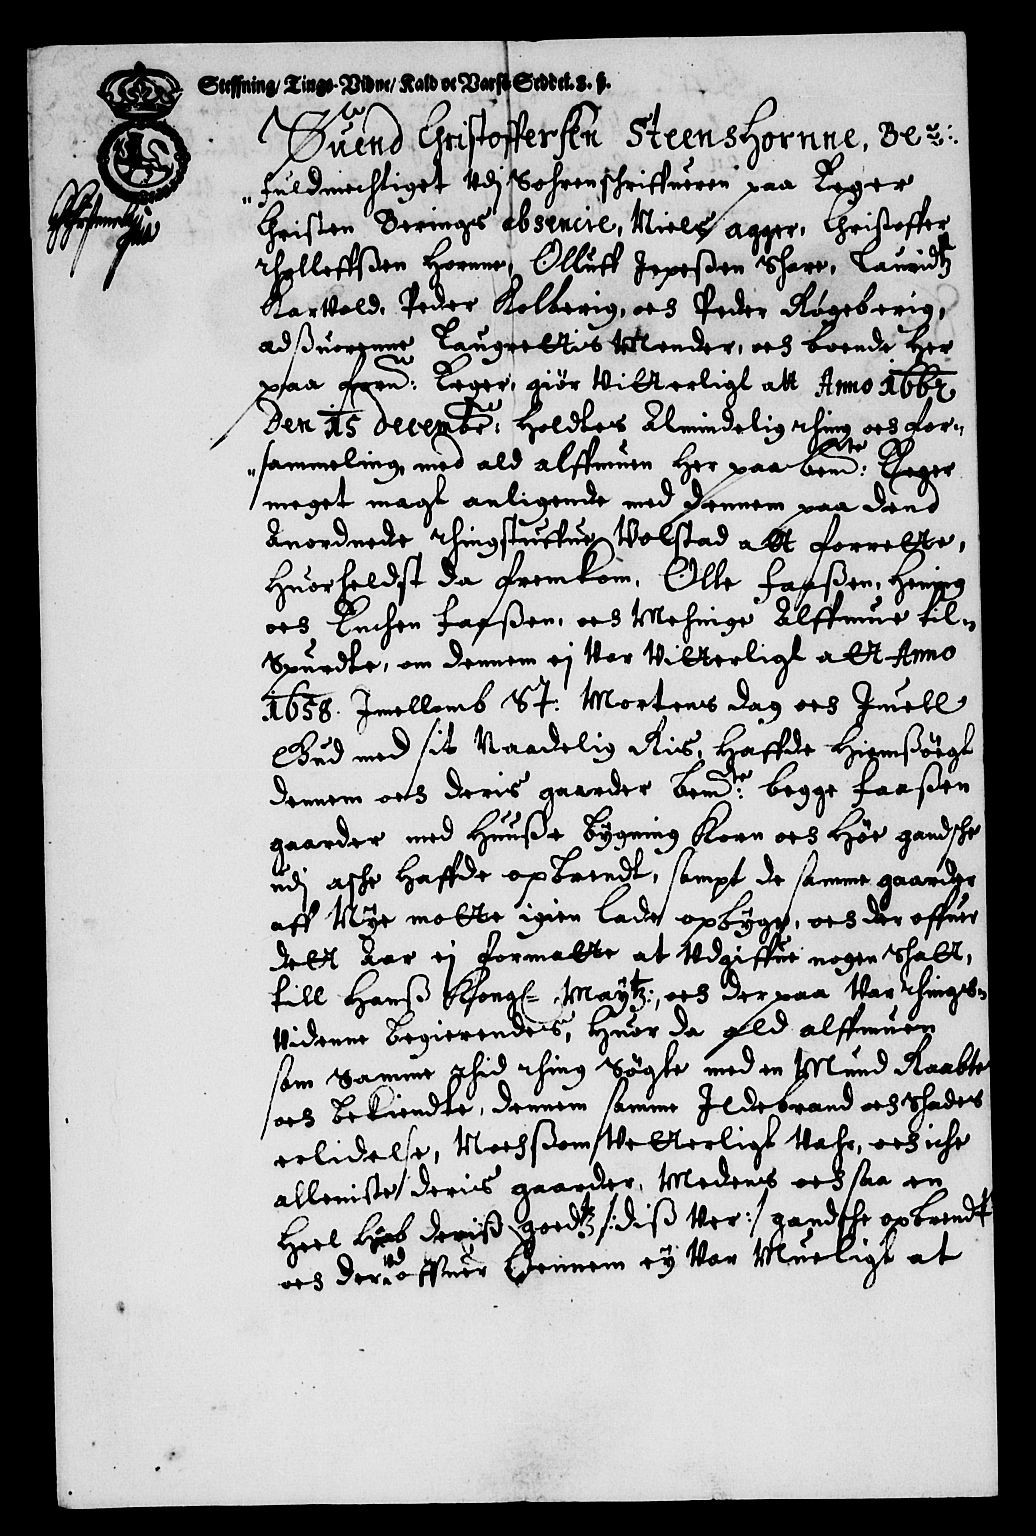 Steffning / Tings-Vidne / Kald oc Varsel Seddel. 8. ß.
Suend Christoffersen Steenshornne, Be=
fuldmechtiget Vdj Sohrenschriffueren paa Leger
Christen Berings absencie, Niels Agger, Christoffer
Thølleffßen Hornne, Olluff Jepeßen Share, Lauridtz
Karvold, Peder Kolberig, och Peder Røgeberig,
adßuorenne Laugrettis Mender, och boende her
paa forn: Leger, giør Vitterligt att Anno 1662
Den 15 Decembr: holdtes Almindelig thing och for=
sammeling, med ald alffmuen her paa bemte: Leger
meget magt anligende med dennem paa dend
Anordnede thingstuffue Volstad att forrette,
huorheldst da fremkom, Olle faaßen, Hening
och Knchen faaßen, och Mehinge Alffmue til=
Spurdte, om dennem ej Var Vitterligt att Anno
1658. Jmellomb St: Mortens dag och Juell
Gud med sit Naadelig Ris, haffde hiemßøegt
dennem och deris gaarder bemte: begge faaßen
gaarder med Huuße bygning Korn och Høe gandsche
udj asche haffde opbrendt, sampt de samme gaarder
aff Nye motte igien lade opbyge, och der offuer
dett Aar ej formatte at Vdgiffue nogen Shatt,
till Hanß Kongl= Maytz:, och der paa Var things=
Videnne begierendes, huor da ald alffmuen
som Samme thid thing Søgte med en Mund Raabte
och bekiendte, dennem samme Jldebrand och Shades
erlidelse, Nochßom Vetterligt Vahr, och iche
alleniste deris gaarder, Medens och saa en
heel hob deriß goedtz /: diß Ver :/ gandsche opbrendt
och der ud offuer Dennem ey Var Mueligt at